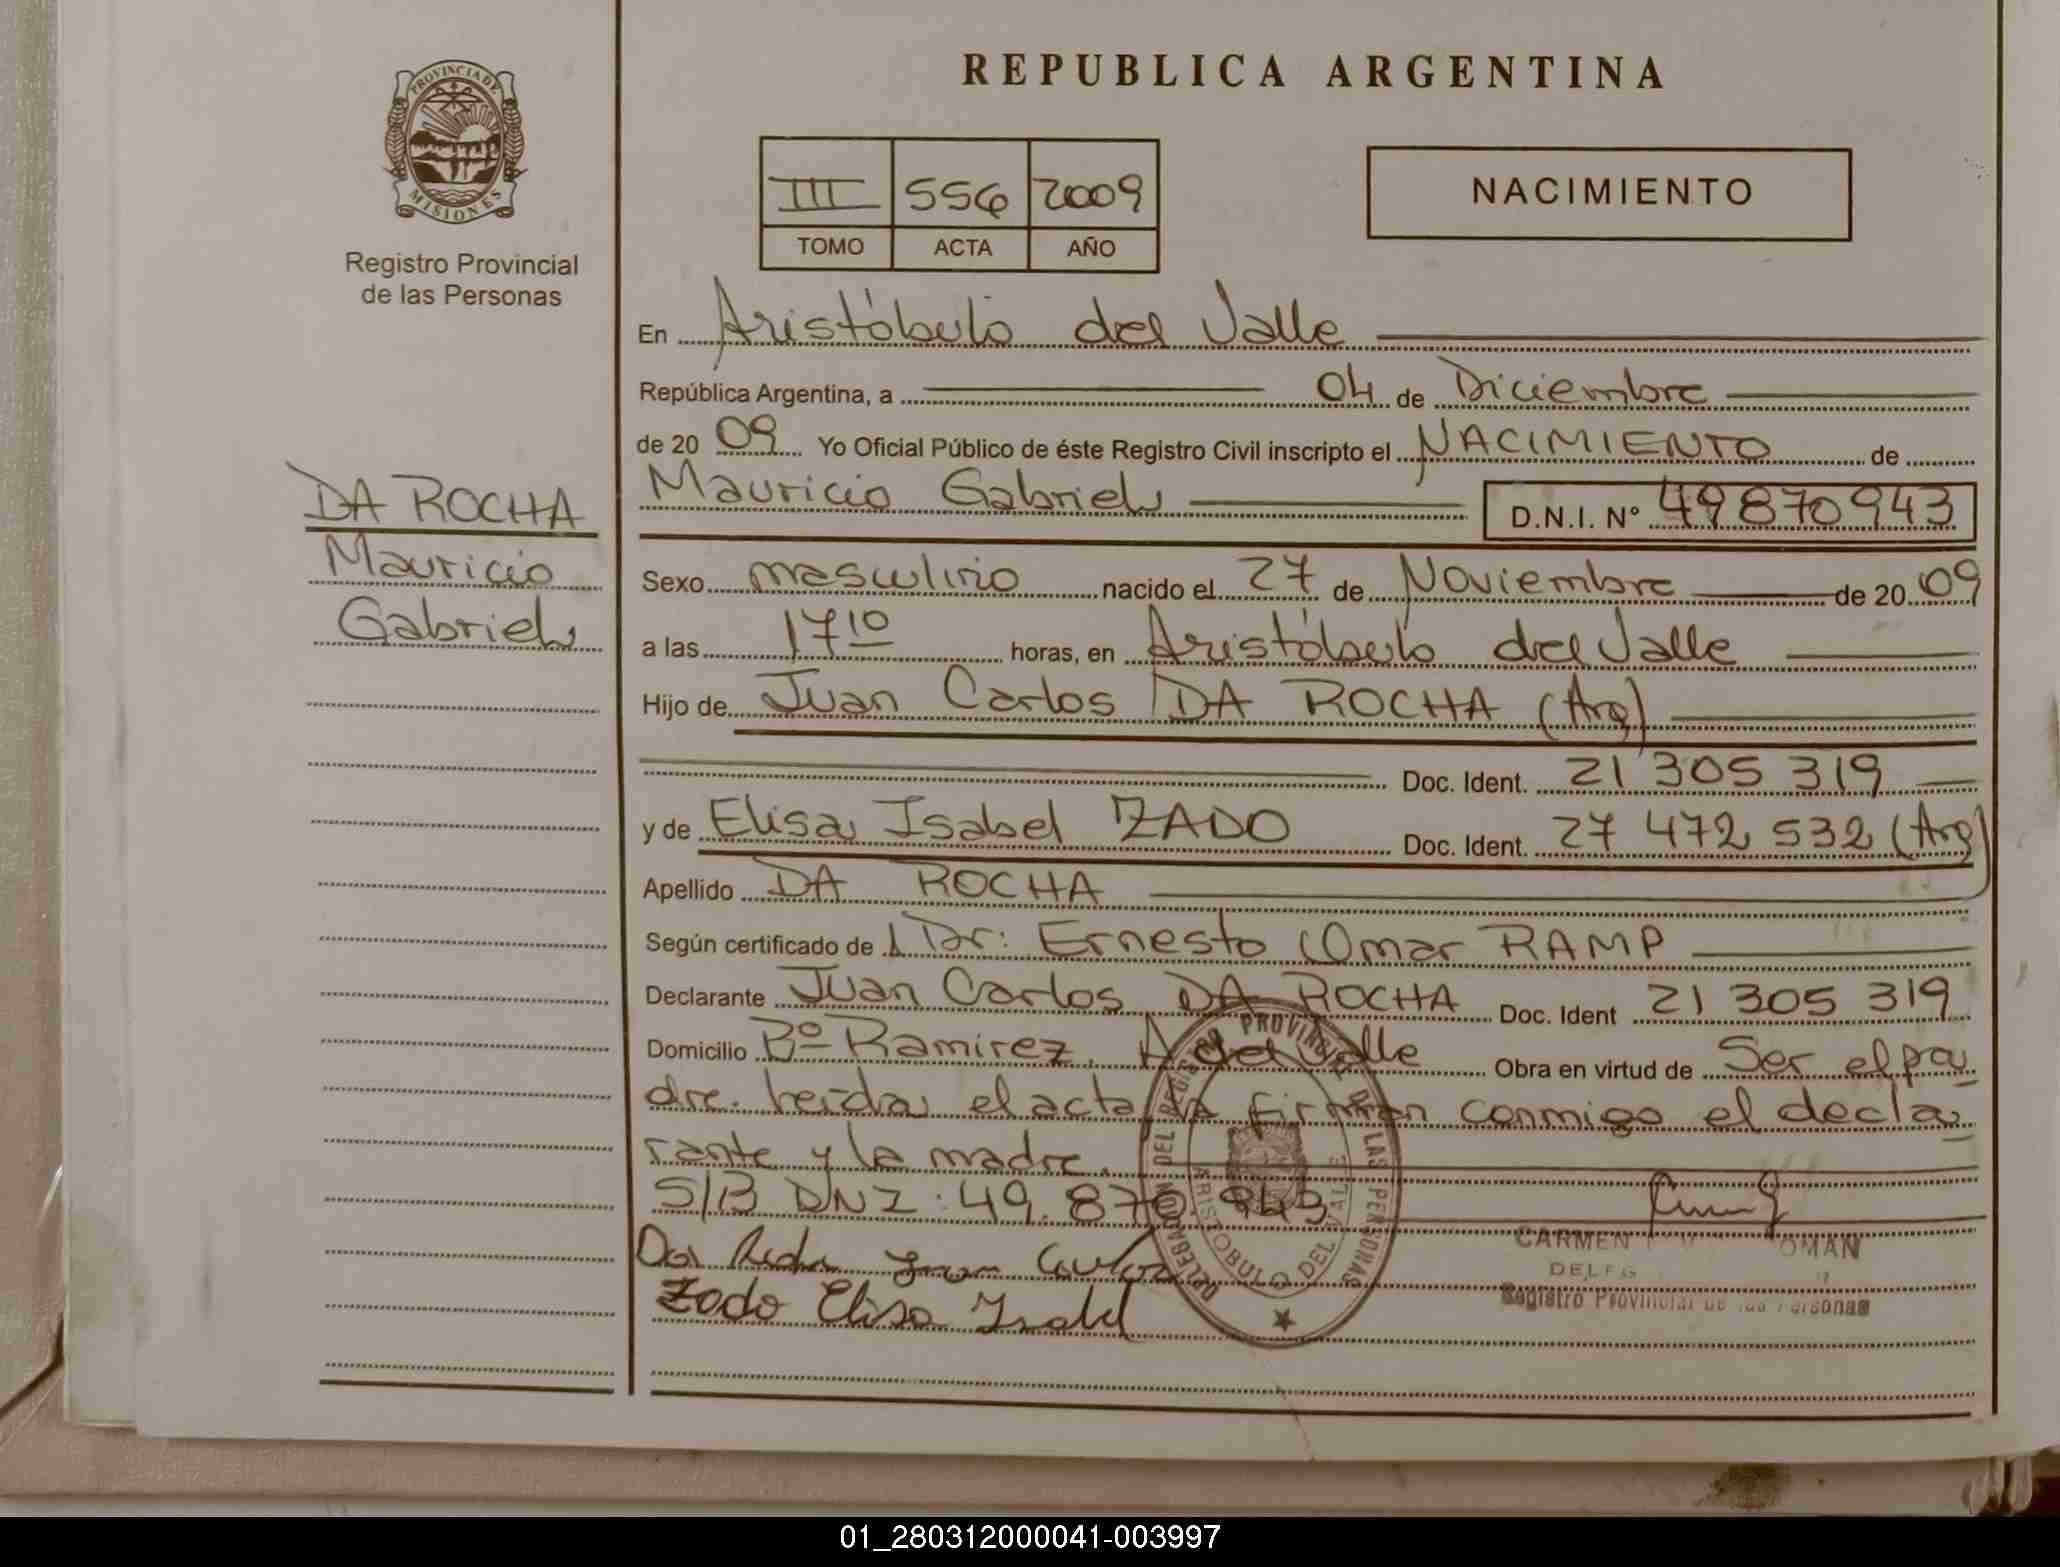 PROVINCIA DE
MISIONES
Registro Provincial
de las Personas
DA ROCHA
Mauricio
Gabriel
REPUBLICA ARGENTINA
III 556 2009
TOMO ACTA AÑO
NACIMIENTO
En Aristóbulo del Valle
República Argentina, a 04 de Diciembre
de 20 09 Yo Oficial Público de éste Registro Civil inscripto el NACIMIENTO de
Mauricio Gabriel D.N.I. N° 49870943
Sexo masculino nacido el 27 de Noviembre de 20 09
a las 17 10 horas, en Aristóbulo del Valle
Hijo de Juan Carlos DA ROCHA (Arg)
Doc. Ident. 21 305 319
y de Elisa Isabel ZADO Doc. Ident. 27 472 532 (Arg)
Apellido DA ROCHA
Según certificado de Dr: Ernesto Omar RAMP
Declarante Juan Carlos DA ROCHA Doc. Ident 21 305 319
Domicilio Bº Ramirez, A del Valle Obra en virtud de Ser el pa
dre. Leída el acta la firman conmigo el decla
rante y la madre.
S/B DNI: 49.870.943
Da Rocha Juan Carlos
Zado Elisa Isabel
DELEGACION DEL REGISTRO PROVINCIAL DE LAS PERSONAS
ARISTOBULO DEL VALLE
CARMEN
Registro Provincial de las Personas
01_280312000041-003997